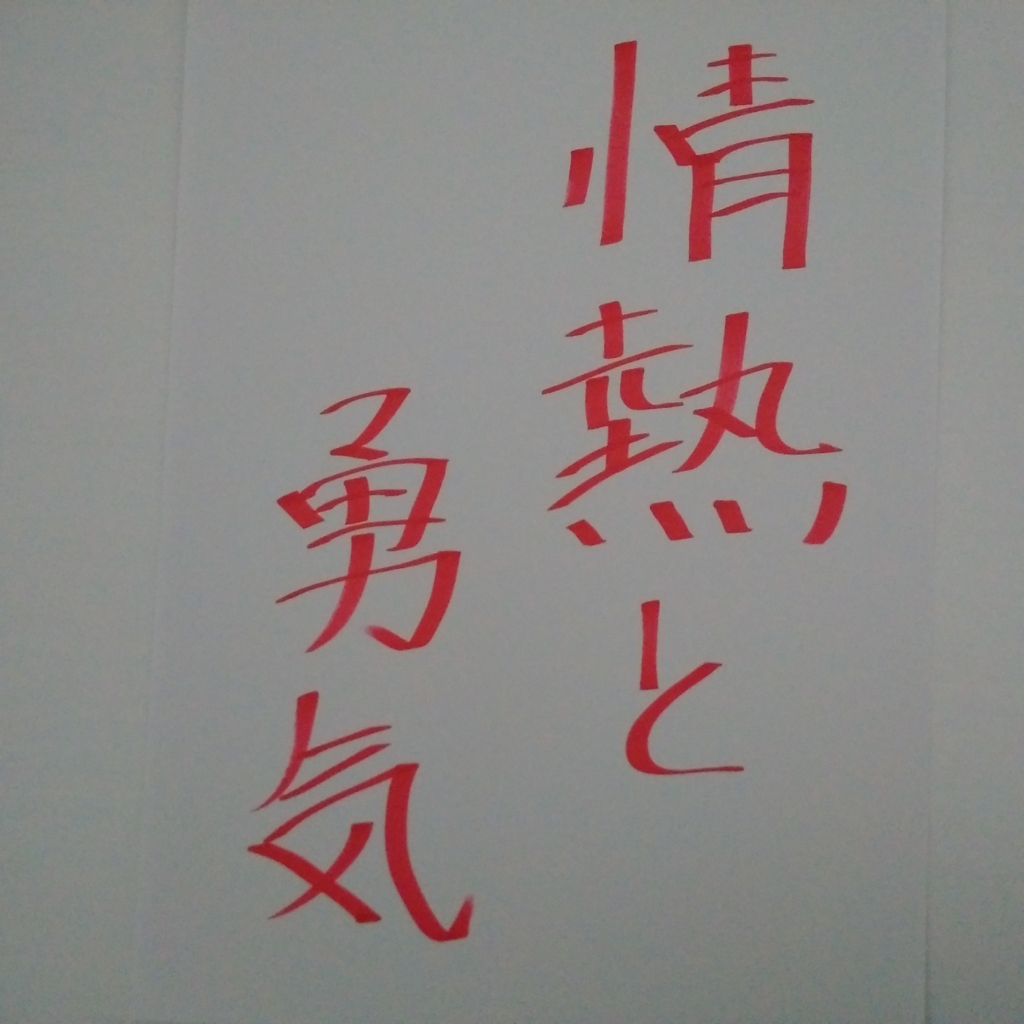 情熱と
勇気